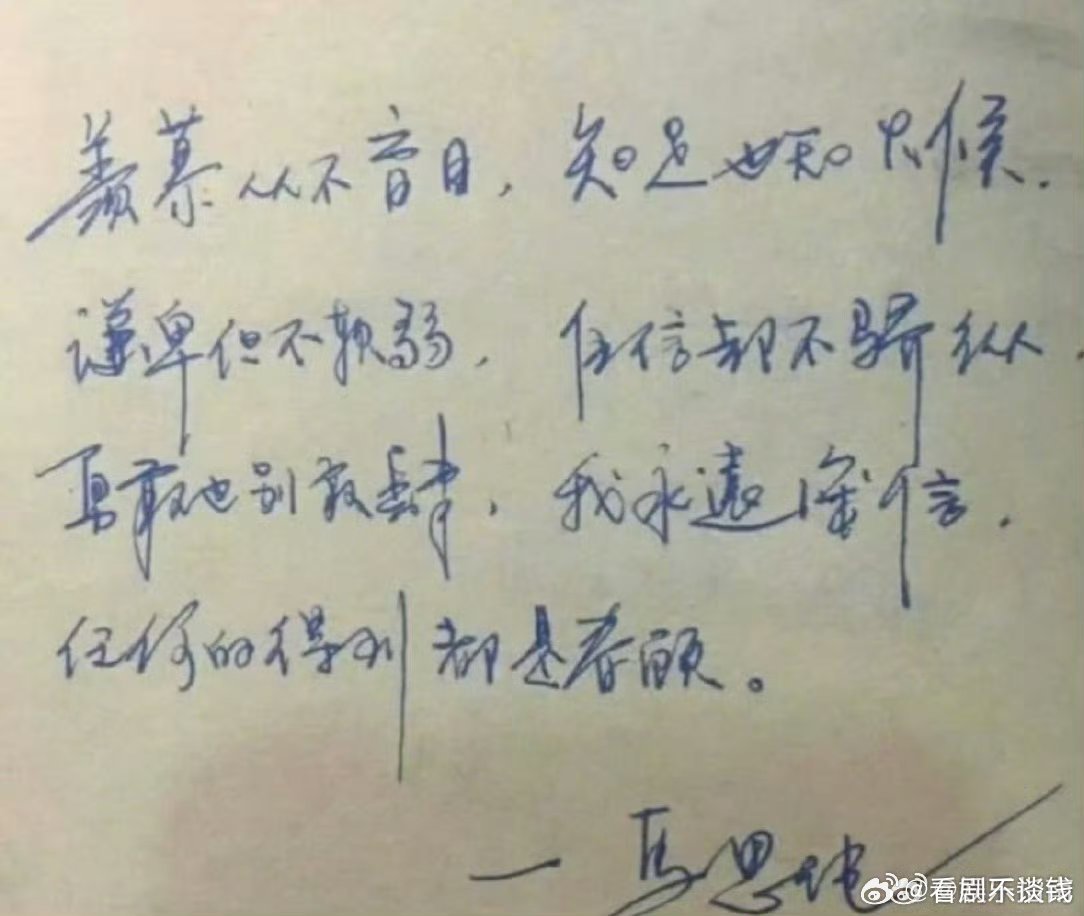 羡慕从不盲目，知足也知火候.
谦卑但不软弱，任信却不骄纵，
勇敢也别放肆，我永遠深信，
任何的得到都是眷顾。
一马思纯
@看剧不谈钱